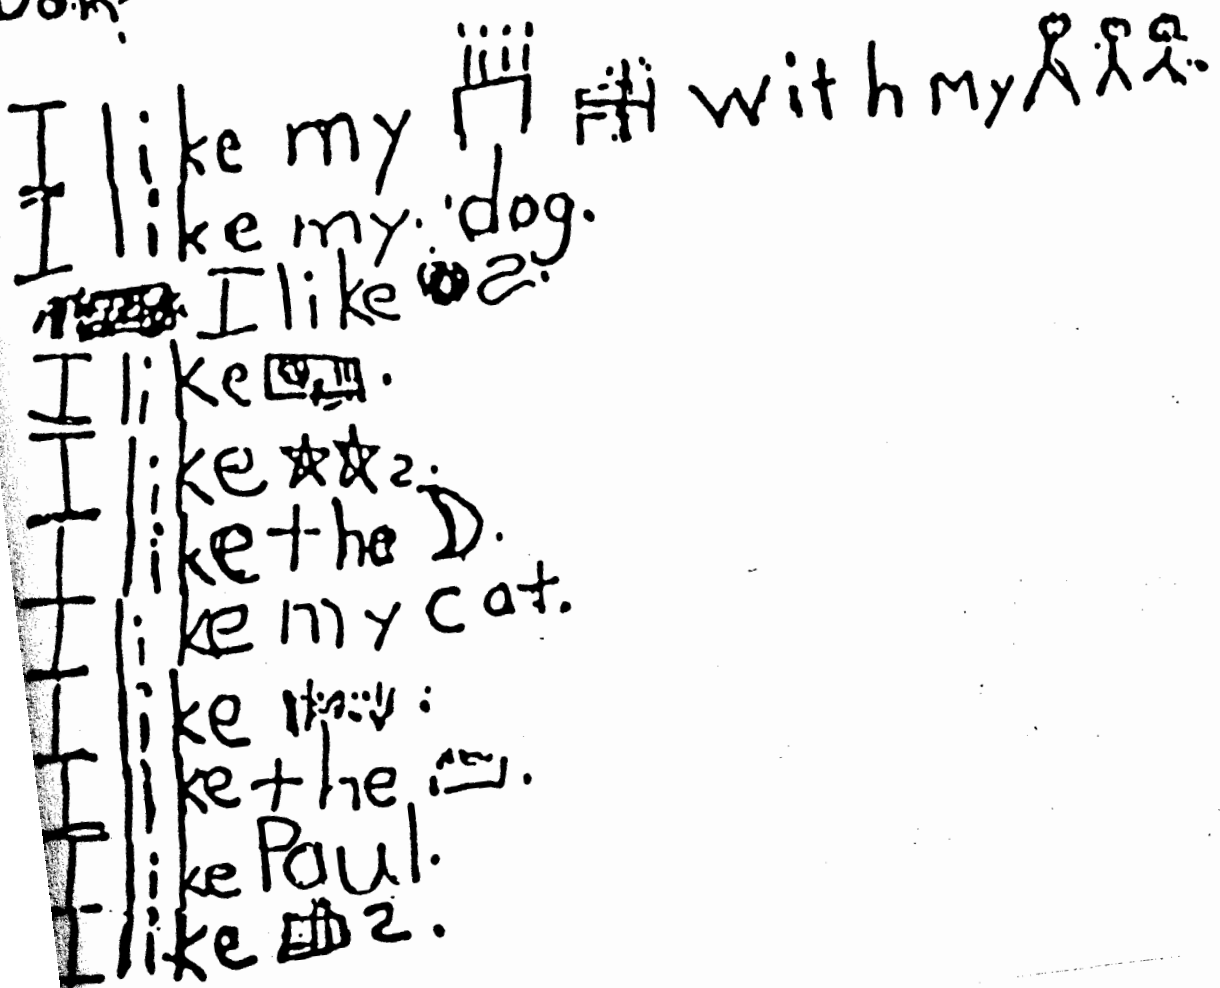 I like my with my
I like my dog.
I like s.
I like .
I like s.
I like the .
I like my cat.
I like .
I like the .
I like Paul.
I like s.